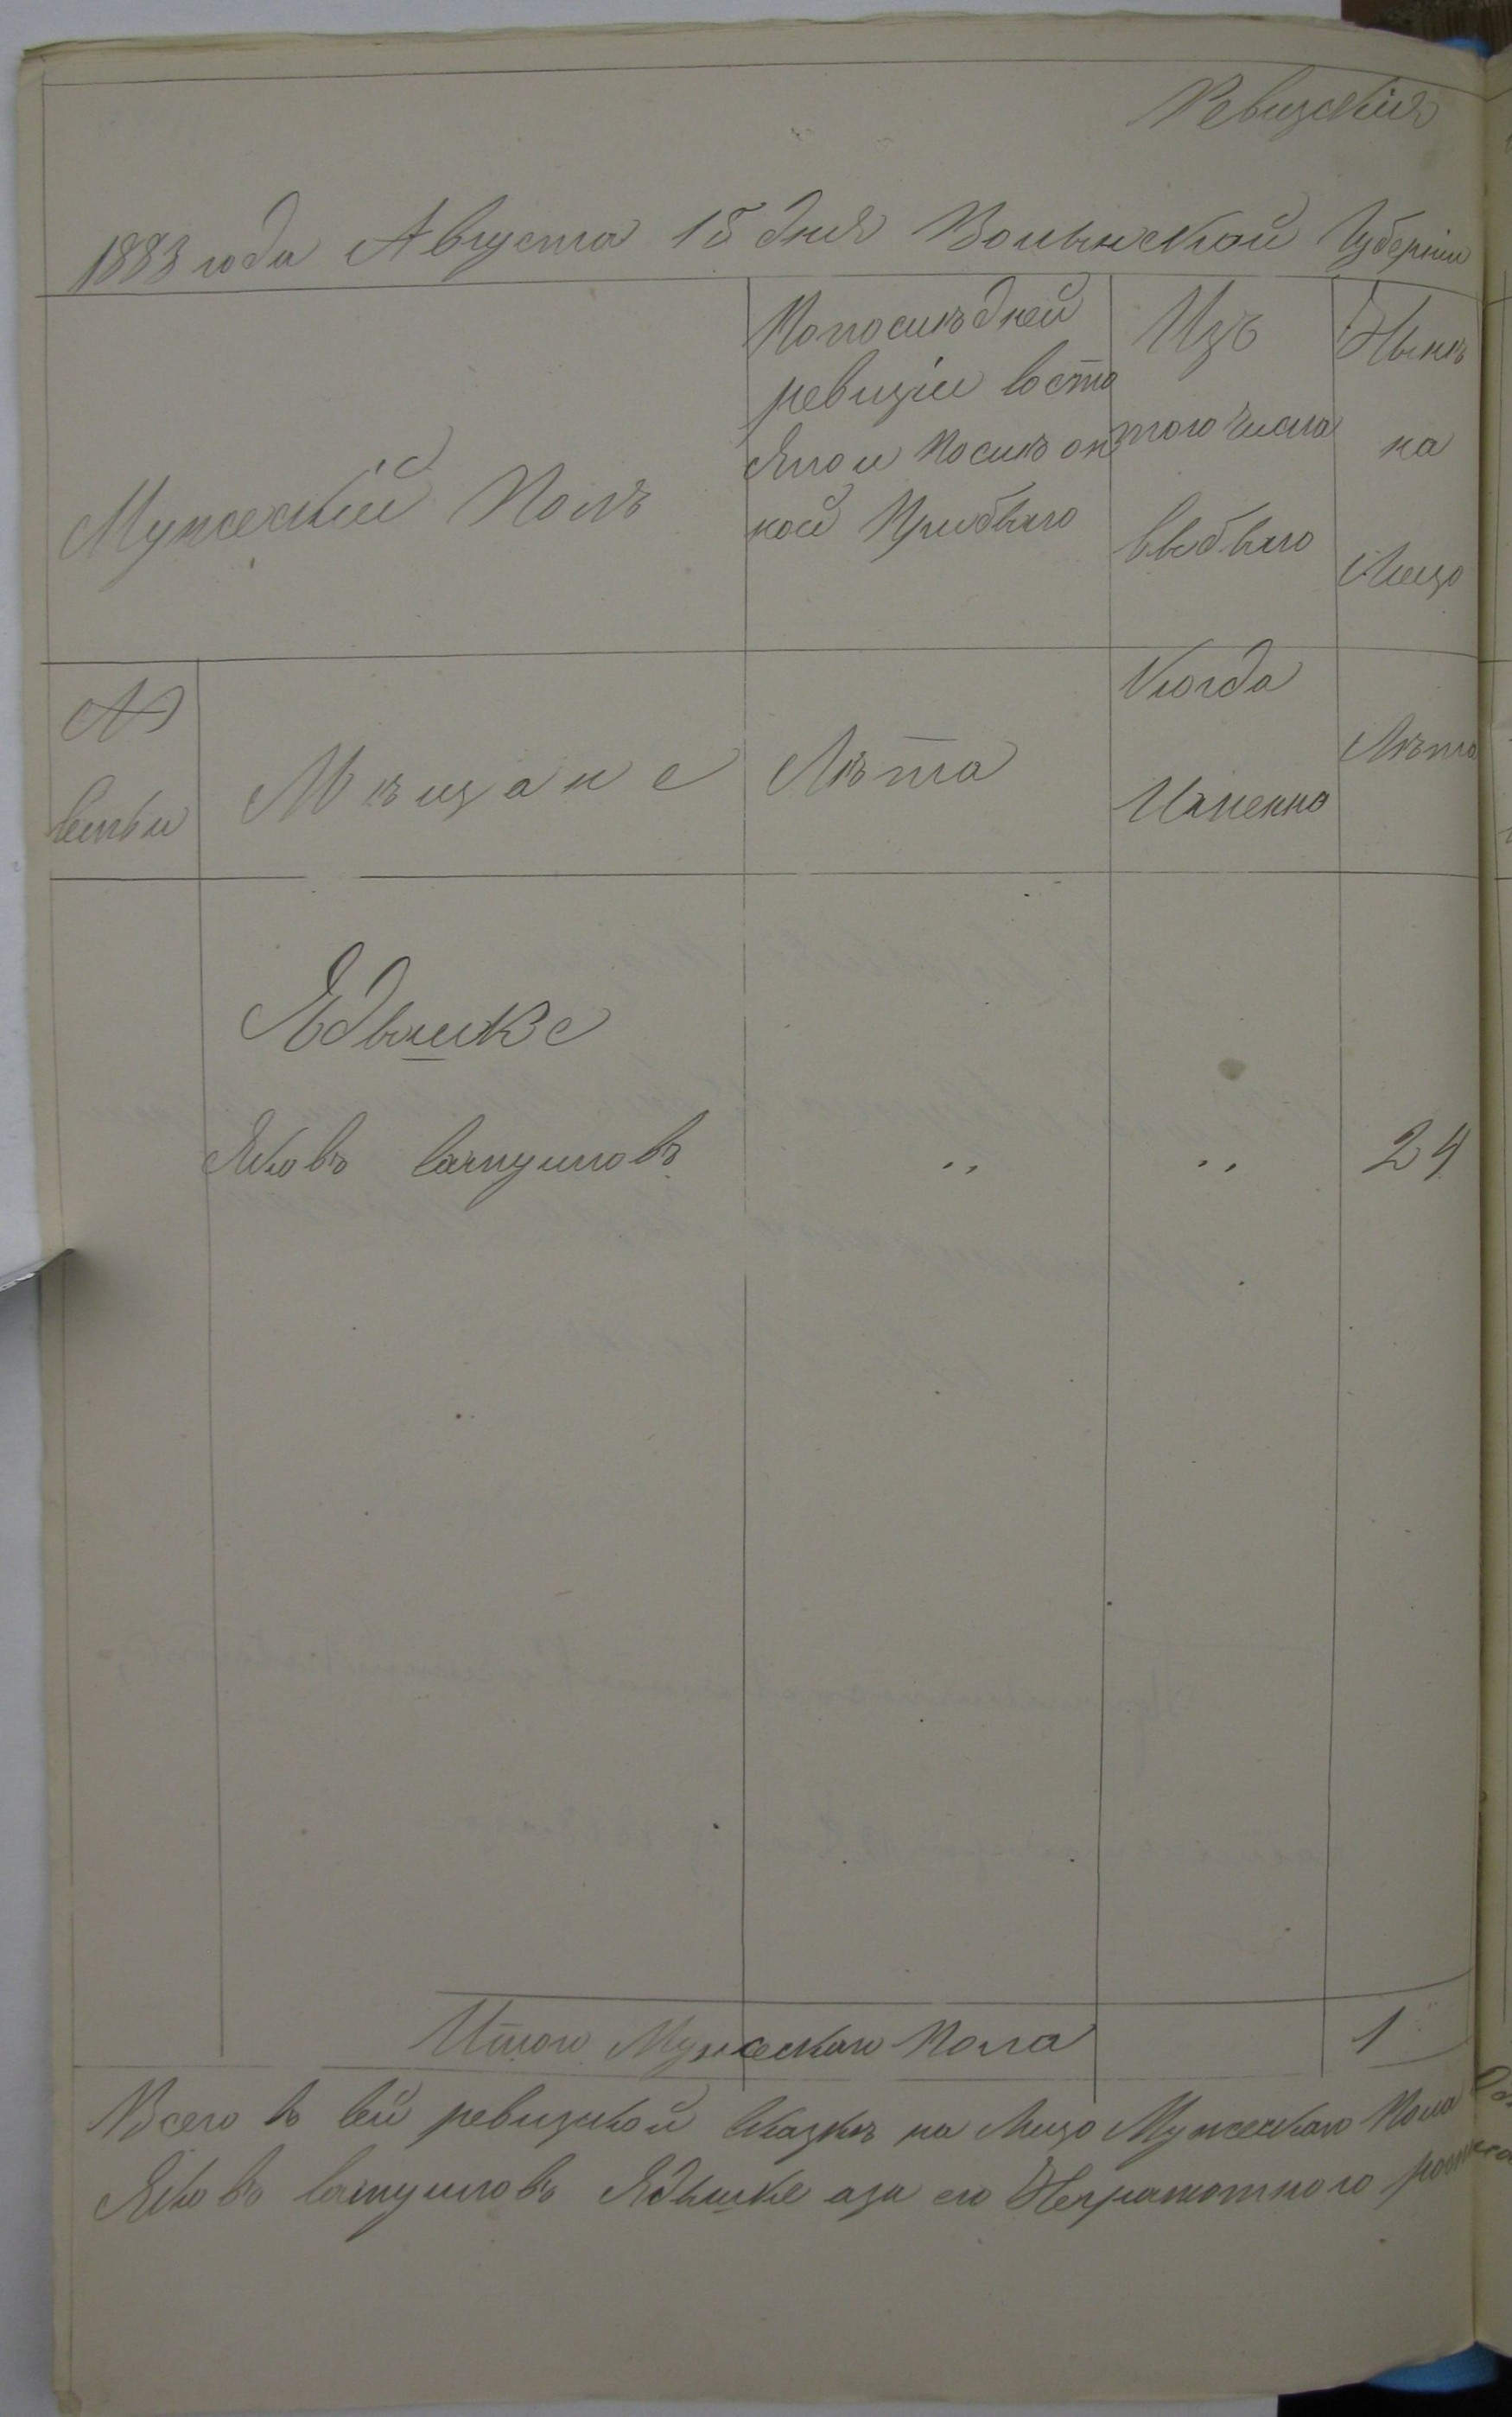 Ревизскія
1883 года Августа 15 дня Волынской Губерніи
Мужескій Полъ
Попослѣдней
ревизіи состо
яло и послѣ он
ной Прибыло
Изъ
того числа
выбыло
Нынѣ
на
Лицо
№
семьи
Мѣщане
Лѣта
Когда
Именно
Лѣта
Ядышке
Яковъ 24
Итого Мужескаго Пола 1
Всего в сей ревизской сказкѣ на Лицо Мужескаго Пола
Яковъ Ядышке аза его Неграмотного